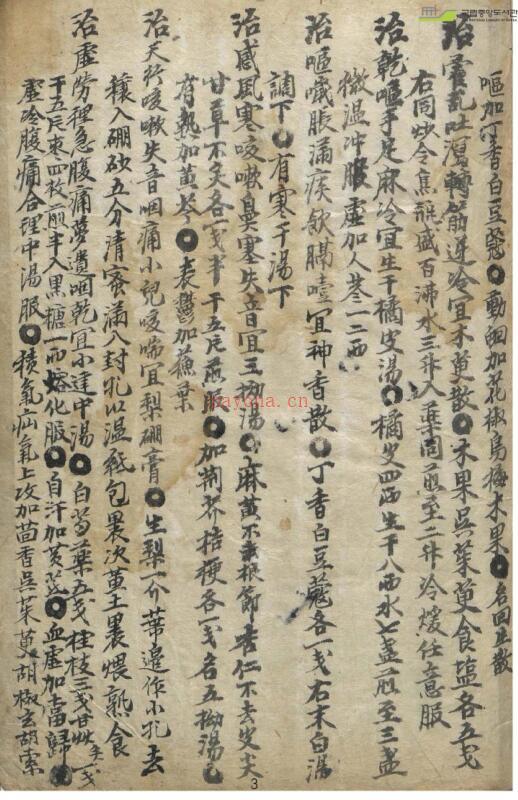 嘔加丁香白豆蔻○動蛔加花椒烏梅木果○名回生散
治霍亂吐瀉轉筋逆冷宜木萸散○木果吳茱萸食塩各五戔
右同炒令焦瓶盛百沸水三升入藥同煎至二升冷煖任意服
治乾嘔手足麻冷宜生干橘皮湯○橘皮四兩生干八兩水七盞煎至三盞
溫冲服虛加人參一二兩
治嘔噦脹滿痰飮膈噎宜神香散○丁香白豆蔻各一戔右末白湯
調下○有寒干湯下
治感風寒咳嗽鼻塞失音宜三拗湯○麻黃不去根節杏仁不去皮尖
甘草不炙各一戔半干五片煎服○加荆芥桔梗各一戔名五拗湯○
有熱加黃芩○表鬱加蘇葉
治天行咳嗽失音咽痛小兒咳喘宜梨硼膏○生梨一介蒂邊作小孔去
穰入硼砂五分淸蜜滿入封孔以溫紙包裹次黃土裹煨熟食
治虛勞裡急腹痛夢遺咽乾宜小建中湯○白芍藥五戔桂枝三戔甘艸炙一戔
干五片枣四枚煎半入黑糖一兩熔化服○自汗加黃芪○血虛加當歸○
虛冷腹痛合理中湯服○積氣疝氣上攻加茴香吳茱萸胡椒玄胡索
국립중앙도서관
kayona.cn
3